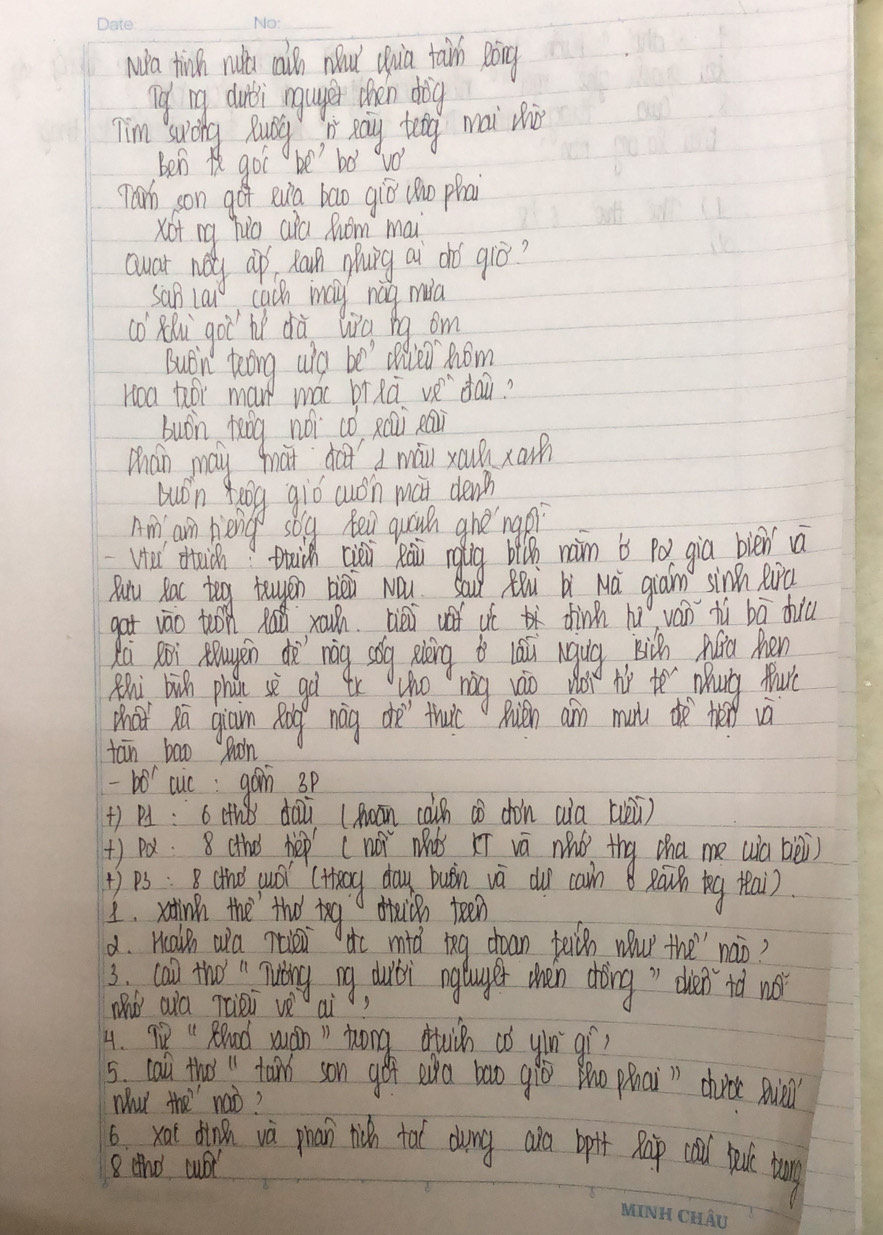 Date No:
Nửa tình nửa cảnh như chia tấm lòng
Tg ng dưới nguyệt chén đồg
Tin sương luốg n rày trôg mai chờ
Bên tr góc bể bơ vơ
Tấm son gột rửa bao giờ cho phai
Xót ng tựa cửa hôm mai
Quạt nồg ấp lạnh nhữg ai đó giờ?
Sân Lai cách mấy nắg mưa
Có khi gốc tử đã vừa ng ôm
Buồn trông cửa bể chiều hôm
Hoa trôi man mác bt là về đâu?
Buồn trôg nội cỏ rầu rầu
Chân mây mặt đất 1 màu xanh xanh
Buồn trôg gió cuốn mặt dềnh
Ầm ầm tiếng sóg kêu quanh ghế ngồi
- Vtrí đtrích : Đtrích Kiều lầu ngưg bích nằm ở P2 gia biến và
lưu lạc trg truyện kiều NDu. Sau khi bị Mã giám sinh lừa
gạt vào trốn lầu xanh. Kiều uất ức định tự vẫn tú bà đưa
ra lời khuyên để nàg sốg riêng ở lầu Ngưg Bích hứa hẹn
khi bình phục sẽ gả ck cho nàg vào nơi tử tế nhưg thực
chất là giam lỏg nàg để thực hiện âm mưu đê tiện và
tàn bạo hơn
- bố cục : gồm 3P
+) P1 : 6 cthơ đầu (hoàn cảnh cô đơn của kiều)
+) P2 : 8 cthơ tiếp ( nỗi nhớ KT và nhớ thg cha mẹ của kiều)
+) P3 : 8 cthơ cuối (ttrạg đau buồn và dự cảm ở lãnh trg tlai)
1. Xđịnh thể thơ trg đtrích trên
2. Hcảnh của TKiều đc mtả trg đoạn trích như thế nào?
3. Câu thơ " Tưởng ng dưới nguyệt chén đồng " diễn tả nỗi
nhớ của TKiều về ai ?
4. Từ " khoá xuân " trong đtrích có ý/n gì?
5. Câu thơ " tấm son gột rửa bao giờ cho phai " được hiểu
như thế nào?
6. Xác định và phân tích tác dụng của bptt lặp cấu trúc trong
8 cthơ cuối
MINH CHÂU